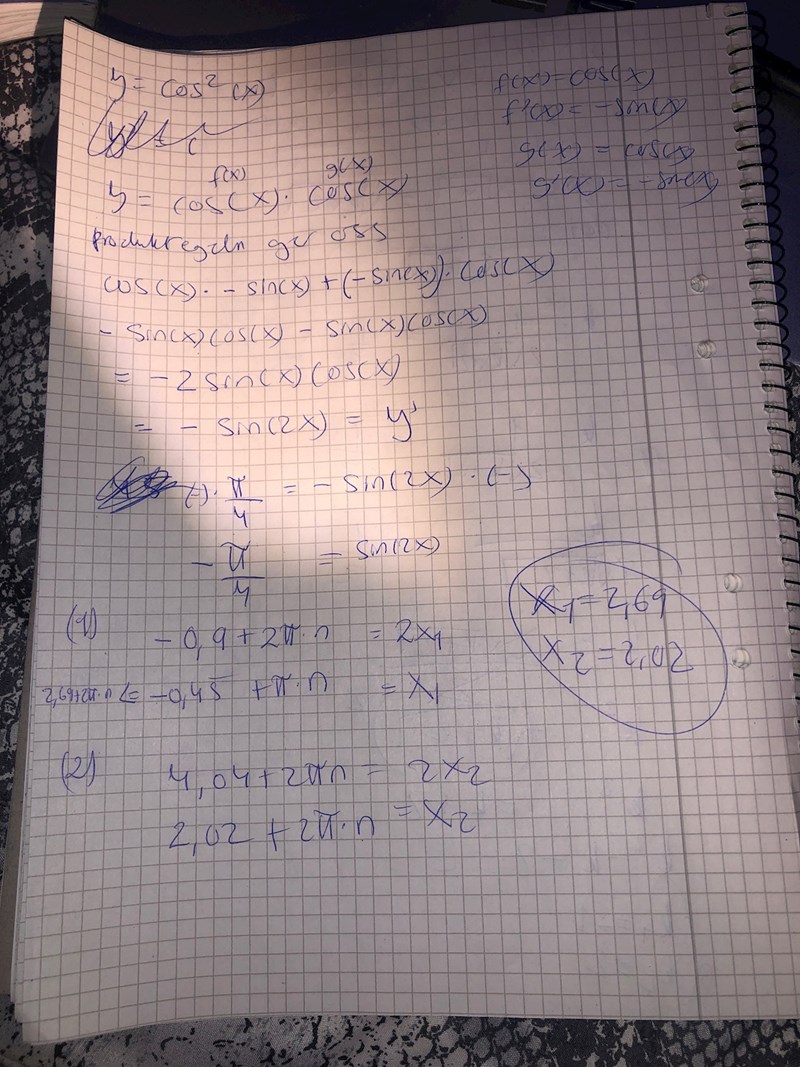 y = cos² (x)
f(x) = cos(x)
f'(x) = -sin(x)
g(x) = cos(x)
g'(x) = -sin(x)
f(x) g(x)
y = cos(x) · cos(x)
produktregeln ger oss
cos(x) · - sin(x) + (-sin(x)) · cos(x)
- sin(x)cos(x) - sin(x)cos(x)
= -2 sin(x)cos(x)
= - sin(2x) = y'
π/4 = - sin(2x)
- π/4 = sin(2x)
(1) -0,9 + 2π·n = 2x₁
2,69+2π·n => -0,45 + π·n = x₁
x₁ = 2,69
x₂ = 2,02
(2) 4,04 + 2πn = 2x₂
2,02 + 2π·n = x₂